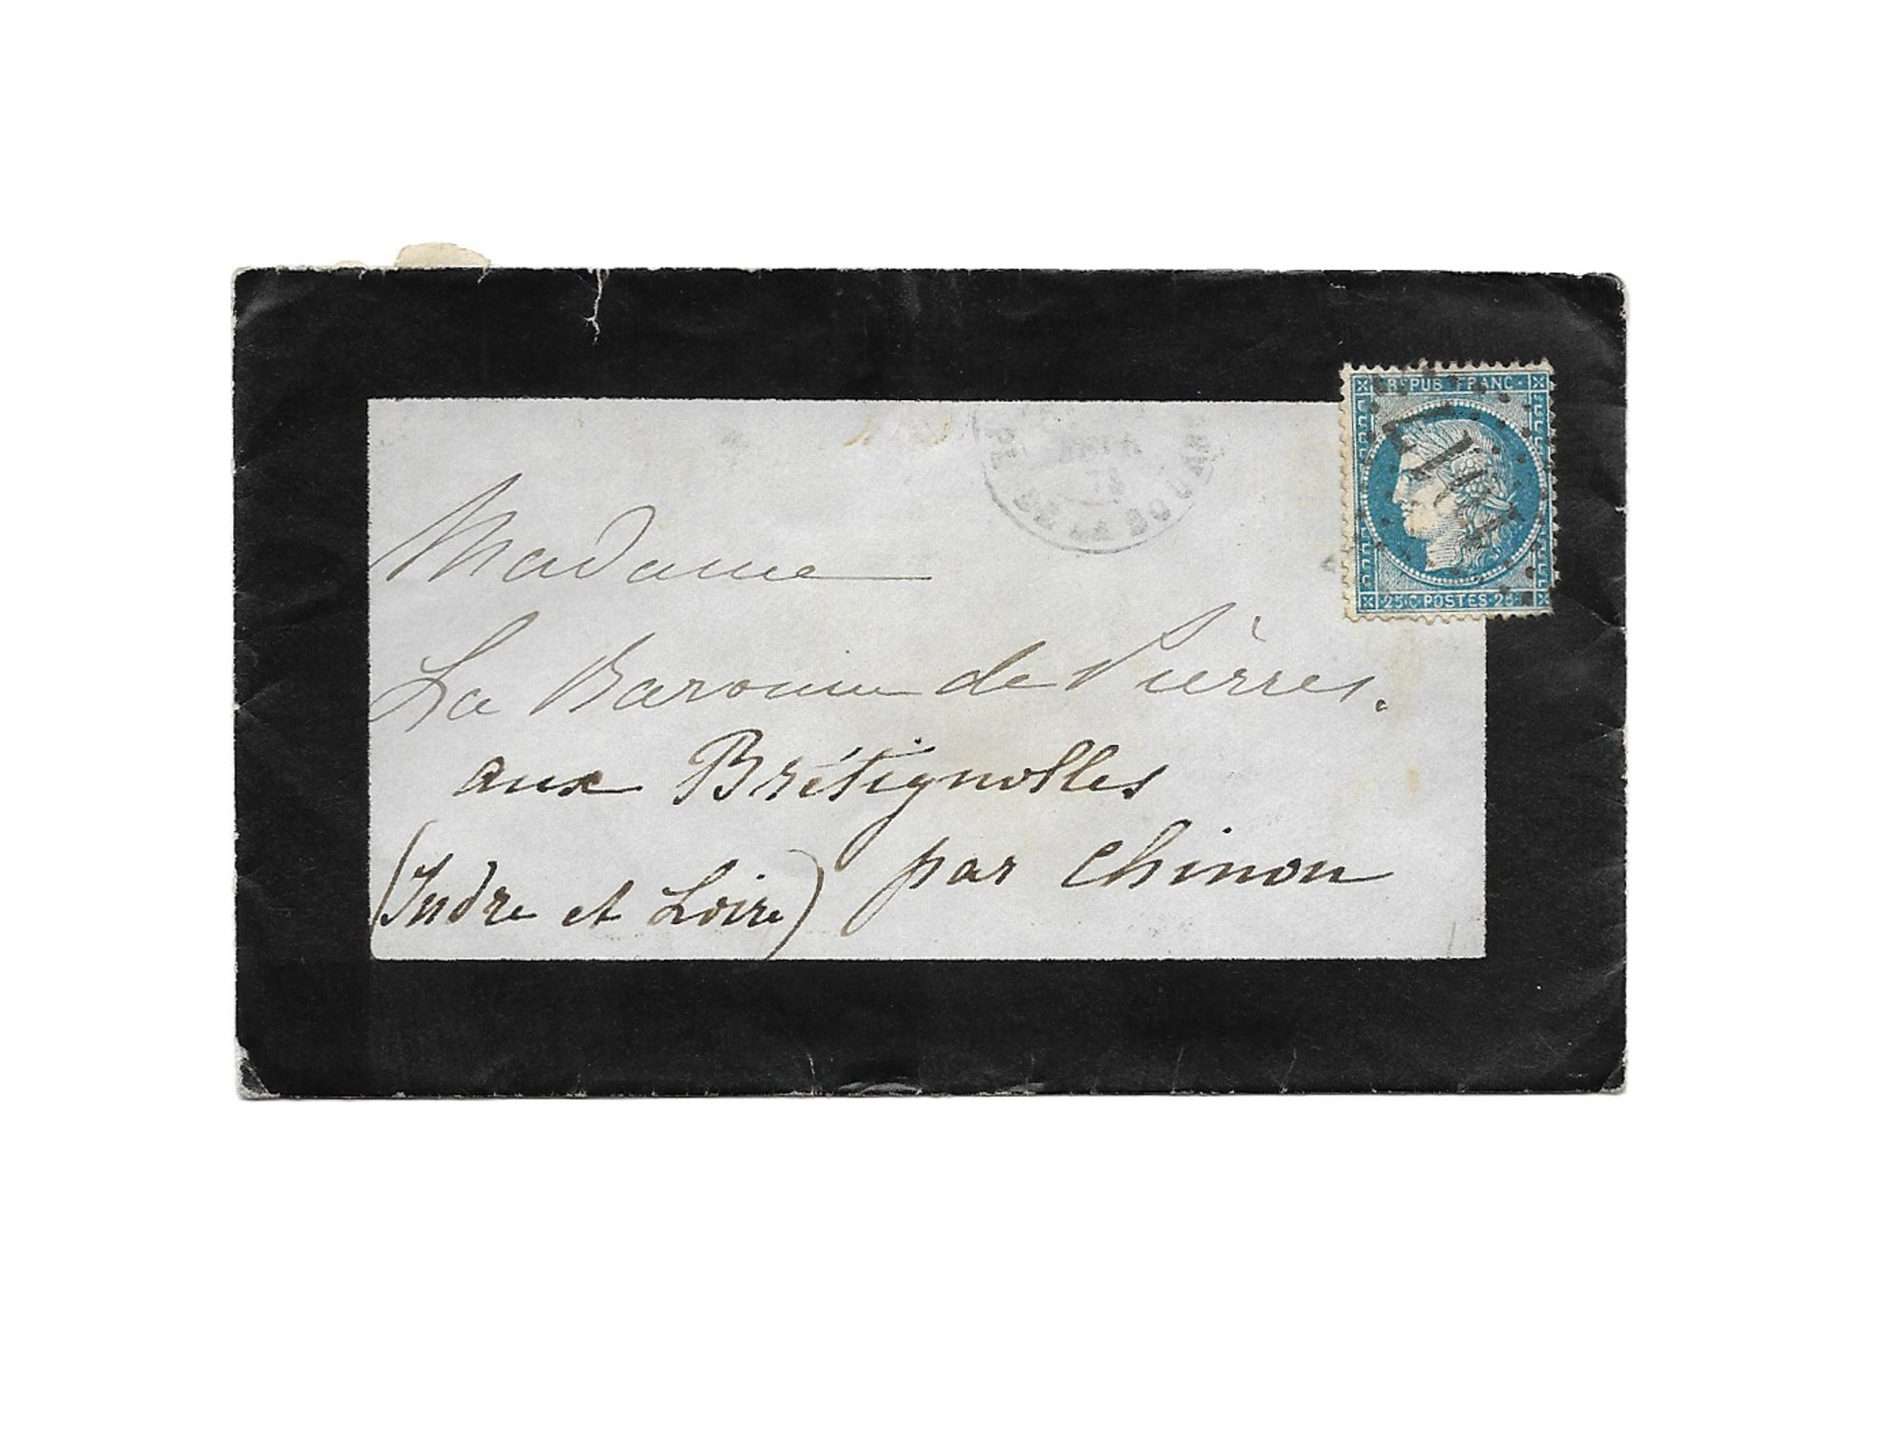 REPUB. FRANC.
25·C·POSTES·25
DE LA
Madame
La Baronne de Pierres.
aux Brétignolles
par Chinon
(Indre et Loire)